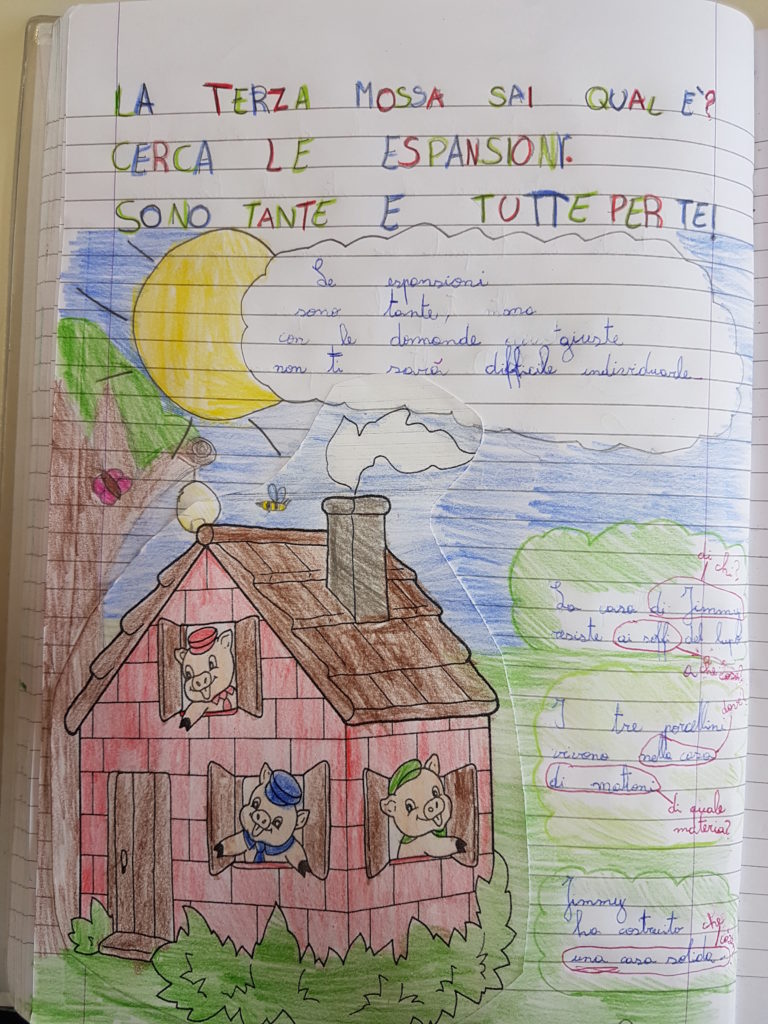 LA TERZA MOSSA SAI QUAL E'?
CERCA LE ESPANSIONI.
SONO TANTE E TUTTE PER TE!
Le espansioni
sono tante, ma
con le domande giuste
non ti sarà difficile individuarle
di chi?
La casa di Jimmy
resiste ai soffi del lupo
a che cosa?
dove?
I tre porcellini
vivono nella casa
di mattoni
di quale
materia?
Jimmy
ha costruito che
cosa
una casa solida.